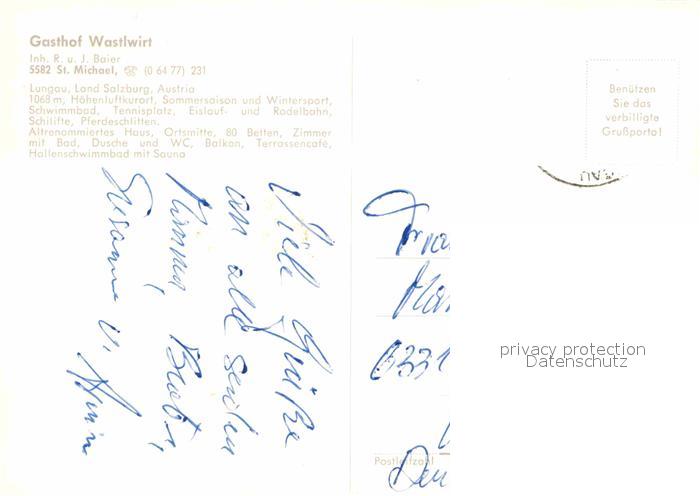 Gasthof Wastlwirt
Inh. R. u. J. Baier
5582 St. Michael, ☏ (0 64 77) 231
Lungau, Land Salzburg, Austria
1068 m; Höhenluftkurort, Sommersaison und Wintersport,
Schwimmbad, Tennisplatz, Eislauf- und Rodelbahn,
Schilifte, Pferdeschlitten.
Altrenommiertes Haus, Ortsmitte, 80 Betten, Zimmer
mit Bad, Dusche und WC, Balkon, Terrassencafé,
Hallenschwimmbad mit Sauna
Viele Grüße
an alle senden
Susanne u.
Benützen
Sie das
verbilligte
Grußporto!
6331
Postleitzahl
privacy protection
Datenschutz